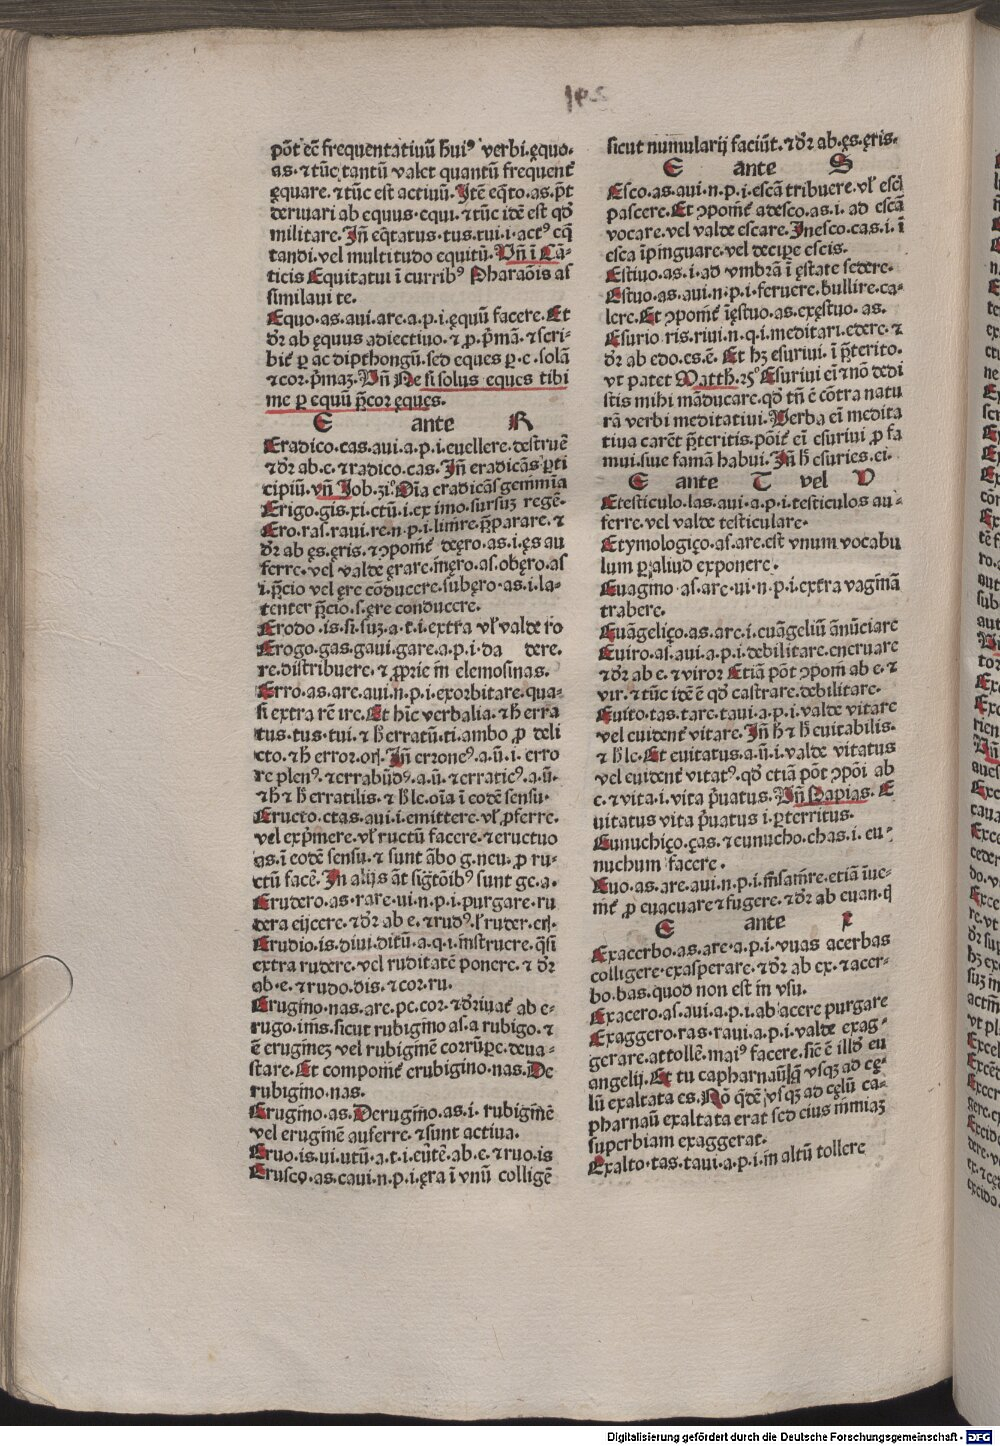 pōt eē frequentatiuū huiꝰ verbi.ęquo.
as.⁊ tūc tantū valet quantū frequent̄
ęquare.⁊ tūc est actiuū.Itē eq̄to.as.p̄t
deriuari ab equus.equi.⁊ tūc idē est qđ
militare.Iñ eq̄tatus.tus.tui.i.actꝰ eq̄
tandi.vel multitudo equitū.Vñ i Cā-
ticis Equitatui ī curribꝰ Pharaōis as
similaui te.
Equo.as.aui.are.a.p.i.ęquū facere.Et
dr̄ ab ęquus adiectiuo.⁊ ꝓ.p̄mā.⁊ scri-
bit̄ ꝑ ae dipthongū.sed eques ꝑ.e.solā
⁊ cor.p̄maꝫ.Vñ Ne si solus eques tibi
me ꝑ equū p̄cor ęques.
E ante R
Eradico.cas.aui.a.p.i.euellere.destruē
⁊ dr̄ ab.e.⁊ radico.cas.Iñ eradicās ꝑti
cipiū.vñ Job.ꝫi.Oīa eradicās gemmīa
Erigo.gis.xi.ctū.i.ex imo.sursuꝫ regē.
Ero.ras.raui.re.n.p.i.limr̄e.p̄parare.⁊
dr̄ ab ęs.ęris.⁊ ꝯpomt̄ deęro.as.i.ęs au
ferre.vel valde ęrare.īnęro.as.obęro.as
i.p̄cio vel ęre cōducere.subęro.as.i.la-
tenter p̄cio.s.ęre conducere.
Erodo.is.si.suꝫ.a.t.i.extra vl̄ valde ro
Erogo.gas.gaui.gare.a.p.i.da dere.
re.distribuere.⁊ ꝓprie in elemosinas.
Erro.as.are.aui.n.p.i.exorbitare.qua-
si extra rē ire.Et hīc verbalia.⁊ h̄ erra
tus.tus.tui.⁊ h̄ erratū.ti.ambo ꝓ deli
cto.⁊ h̄ error.orꝭ.Iñ erroneꝰ.a.ū.i.erro
re plenꝰ.⁊ errabūdꝰ.a.ū.⁊ erraticꝰ.a.ū.
⁊ h̄ ⁊ h̄ erratilis.⁊ h̄ le.oīa ī eodē sensu.
Eructo.ctas.aui.i.emittere.vl̄ ꝓferre.
vel exp̄mere.vl̄ ructū facere.⁊ eructuo
as.ī eodē sensu.⁊ sunt ābo g.neu.ꝓ ru-
ctū facē.In alijs āt siḡtōibꝰ sunt ge.a.
Erudero.as.rare.ui.n.p.i.purgare.ru
dera eijcere.⁊ dr̄ ab e.⁊ rudꝰ.l̄ ruder.erꝭ.
Erudio.is.diui.ditū.a.q.i.īnstruere.q̄si
extra rudere.vel ruditatē ponere.⁊ dr̄
ab.e.⁊ rudo.dis.⁊ cor.ru.
Erugino.nas.are.pe.cor.⁊ dr̄iuat̄ ab e-
rugo.inīs.sicut rubigīno as.a rubigo.⁊
ē erugineꝫ vel rubiginē corrūpe.deua-
stare.Et compomt̄ erubigino.nas.De
rubigino.nas.
Erugino.as.Derugino.as.i.rubiginē
vel eruginē auferre.⁊ sunt actiua.
Eruo.is.ui.utū.a.t.i.eūtē.ab.e.⁊ ruo.is
Erusco.as.caui.n.p.i.ęra ī vnū colligē
sicut numularij faciūt.⁊ dr̄ ab.ęs.ęris.
E ante S
Esco.as.aui.n.p.i.escā tribuere.vl̄ escā
pascere.Et ꝯpomt̄ adesco.as.i.ad escā
vocare.vel valde escare.Inesco.cas.i.ī
esca īpinguare.vel decipe escis.
Estiuo.as.i.ad vmbrā ī ęstate sedere.
Estuo.as.aui.n.p.i.feruere.bullire.ca-
lere.Et ꝯpomt̄ īęstuo.as.exęstuo.as.
Esurio ris.riui.n.q.i.meditari.edere.⁊
dr̄ ab edo.es.ē.Et hꝫ esuriui.i p̄terito.
vt patet Matth.25 Esuriui eī ⁊ nō dedi
stis mihi māducare.qđ tñ ē cōtra natu
rā verbi meditatiui.Verba eī medita
tiua carēt p̄teritis.pōit̄ eī esuriui ꝓ fa
mui.siue famā habui.Iñ h̄ esuries.ei.
E ante T vel V
Etesticulo.las.aui.a.p.i.testiculos au-
ferre.vel valde testiculare.
Etymologiço.as.are.est vnum vocabu
lum ꝑ aliud exponere.
Euagino.as.are.ui.n.p.i.extra vagīnā
trahere.
Euāgeliço.as.are.i.euāgeliū ānūciare
Euiro.as.aui.a.p.i.debilitare.eneruare
⁊ dr̄ ab e.⁊ viror Etiā pōt ꝯpoīn ab e.⁊
vir.⁊ tūc idē ē qđ castrare.debilitare.
Euito.tas.tare.taui.a.p.i.valde vitare
vel euident̄ vitare.Iñ h̄ ⁊ h̄ euitabilis.
⁊ h̄ le.Et euitatus.a.ū.i.valde vitatus
vel euident̄ vitatꝰ.qđ etiā pōt ꝯpōi ab
e.⁊ vita.i.vita p̄uatus.Vñ Papias.E
uitatus vita p̄uatus i.ꝑterritus.
Eunuchiço.ças.⁊ eunucho.chas.i.eu-
nuchum facere.
Euo.as.are.aui.n.p.i.īnsanīre.etiā īue-
nit̄ ꝓ euacuare ⁊ fugere.⁊ dr̄ ab euan.q̄
E ante X
Exacerbo.as.are.a.p.i.vuas acerbas
colligere.exasperare.⁊ dr̄ ab ex.⁊ acer-
bo.bas.quod non est in vsu.
Exacero.as.aui.a.p.i.ab acere purgare
Exaggero.ras.raui.a.p.i.valde exag-
gerare.attollē.maiꝰ facere.sic ē illđ eu
angelij.Et tu capharnaū q̄ vsqꝫ ad cę-
lū exaltata es.Nō qđē vsqꝫ ad cęlū ca-
pharnaū exaltata erat sed eius īnimiaꝫ
superbiam exaggerat.
Exalto.tas.taui.a.p.i.in altū tollere
Digitalisierung gefördert durch die Deutsche Forschungsgemeinschaft - DFG